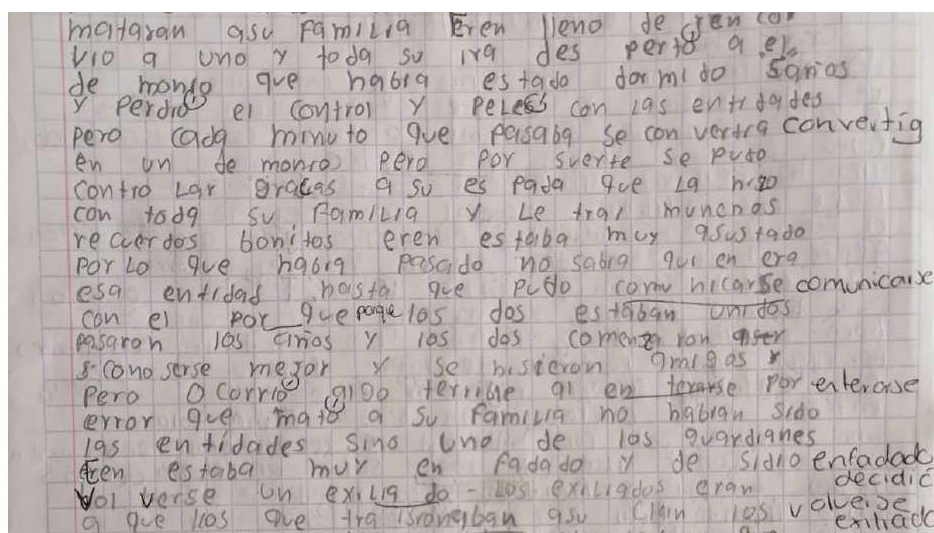 mataran asu familia Eren lleno de
vio a uno y toda su ira des perto a el
de monio que habia es tado dor mi do 5años
y perdio el control y peleo con las enti dades
pero cada minuto que pasaba se con vertia convertia
en un de monio pero por suerte se pudo
contro Lar gracas a su es pada que la hizo
con toda su familia y Le trai munchos
re cuerdos bonitos eren es taba muy asustado
por Lo que habia pasado no sabia qui en era
esa entidad hasta que pudo comu nicarse comunicarse
con el por que porque los dos es taban unidos
pasaron los años y los dos comenza ron aser
cono serse mejor y se hisieron amigos y
Pero O corrio algo terrible al en terarse Por enterarse
error que mato a su familia no habian sido
las en tidades sino uno de los guardianes
Eren estaba muy en fadado y de sidio enfadado
decidió
vol verse un exilia do - Los exiliados eran
volverse
a que llos que asu Clan los exiliado